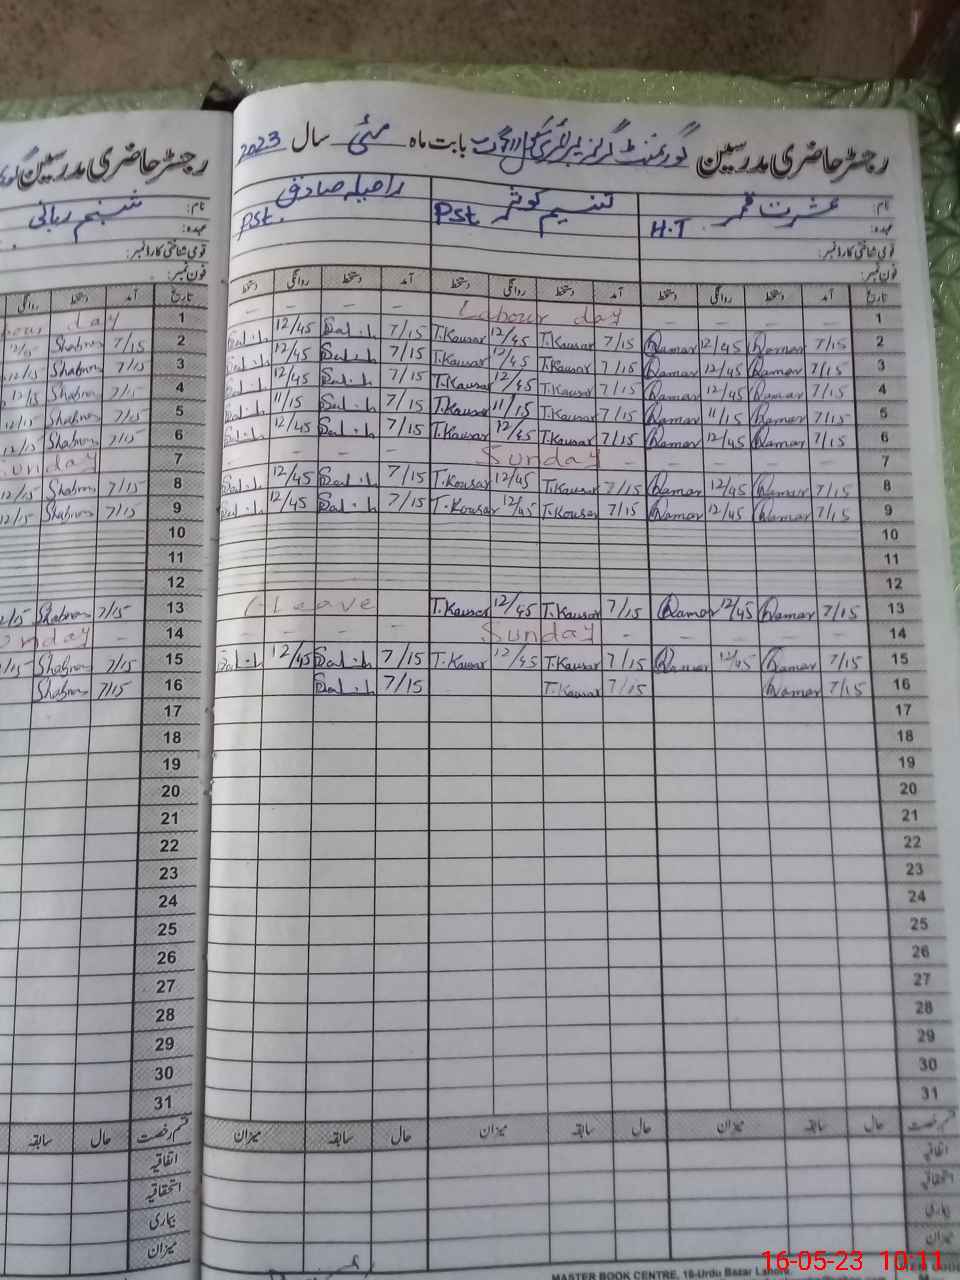 رجسٹر حاضری مدرسین گورنمنٹ گرلز بابت ماہ مئی سال 2023
نام: عشرت قمر تسنیم کوثر راحیلہ صادق
عہدہ: H.T Pst Pst.
قومی شناختی کارڈ نمبر:
فون نمبر:
تاریخ آمد دستخط روانگی دستخط آمد دستخط روانگی دستخط آمد دستخط روانگی دستخط
1 – – – – Labour day – –
2 7/15 Qamar 12/45 Qamar 7/15 T.Kausar 12/45 T.Kausar 7/15 12/45
3 7/15 Qamar 12/45 Qamar 7/15 T.Kausar 12/45 T.Kausar 7/15 12/45
4 7/15 Qamar 12/45 Qamar 7/15 T.Kausar 12/45 T.Kausar 7/15 12/45
5 7/15 Qamar 11/15 Qamar 7/15 T.Kausar 11/15 T.Kausar 7/15 11/15
6 7/15 Qamar 12/45 Qamar 7/15 T.Kausar 12/45 T.Kausar 7/15 12/45
7 – – – – Sunday – – – –
8 7/15 Qamar 12/45 Qamar 7/15 T.Kausar 12/45 T.Kausar 7/15 12/45
9 7/15 Qamar 12/45 Qamar 7/15 T.Kausar 12/45 T.Kausar 7/15 12/45
10
11
12
13 7/15 Qamar 12/45 Qamar 7/15 T.Kausar 12/45 T.Kausar Leave
14 – – – – Sunday – – – –
15 7/15 Qamar 12/45 Qamar 7/15 T.Kausar 12/45 T.Kausar 7/15 12/45
16 7/15 Qamar 7/15 T.Kausar 7/15
17
18
19
20
21
22
23
24
25
26
27
28
29
30
31
قسم رخصت حال سابقہ میزان حال سابقہ میزان حال سابقہ میزان
اتفاقیہ
استحقاقیہ
بیماری
میزان
MASTER BOOK CENTRE, 16-Urdu Bazar Lahore.
رجسٹر حاضری مدرسین
نام: شبنم ربانی
عہدہ:
قومی شناختی کارڈ نمبر:
فون نمبر:
تاریخ آمد دستخط روانگی
1 day
2 7/15 Shabnam
3 7/15 Shabnam
4 7/15 Shabnam
5 7/15 Shabnam
6 7/15 Shabnam
7 Sunday
8 7/15 Shabnam 12/15
9 7/15 Shabnam 12/15
10
11
12
13 7/15 Shabnam
14 –
15 7/15 Shabnam
16 7/15 Shabnam
17
18
19
20
21
22
23
24
25
26
27
28
29
30
31
قسم رخصت حال سابقہ
اتفاقیہ
استحقاقیہ
بیماری
میزان
16-05-23 10:11